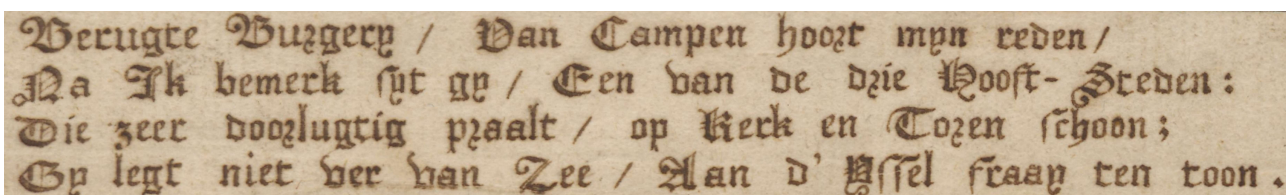 Berugte Burgery / Van Campen hoort myn reden /
Na Ik bemerk syt gy / Een van de drie Hooft-Steden:
Die zeer doorlugtig praalt / op Kerk en Toren schoon;
Gy legt niet ver van Zee / Aan d' Yssel fraay ten toon.